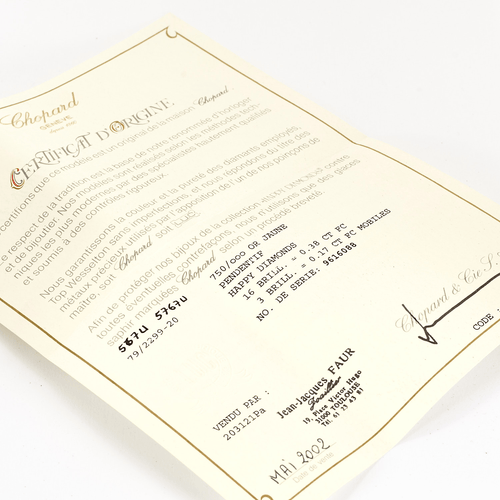 Chopard
GENÈVE
CERTIFICAT D'ORIGINE
certifions que ce modèle est un original de la maison Chopard.
Le respect de la tradition est la base de notre renommée d'horloger
et de bijoutier. Nos modèles sont réalisés selon les méthodes tech-
niques les plus modernes par des spécialistes hautement qualifiés
et soumis à des contrôles rigoureux.
Nous garantissons la couleur et la pureté des diamants employés,
Top Wesselton sans imperfections et nous répondons du titre des
métaux précieux utilisés par l'apposition de l'un de nos poinçons de
maître, soit Chopard soit
Afin de protéger nos bijoux de la collection contre
toutes éventuelles contrefaçons, nous n'utilisons que des glaces
saphir marquées Chopard selon un procédé breveté.
5674 5767U
79/2299-20
750/000 OR JAUNE
PENDENTIF
HAPPY DIAMONDS
16 BRILL. = 0.38 CT FC
3 BRILL. = 0.17 CT FC MOBILES
NO. DE SERIE: 9616088
Chopard & Cie S.
CODE
VENDU PAR :
203121Pa
Jean-Jacques FAUR
Joaillier
19, Place Victor Hugo
31000 TOULOUSE
Tél. 61 23 43 81
MAI 2002
Date de vente